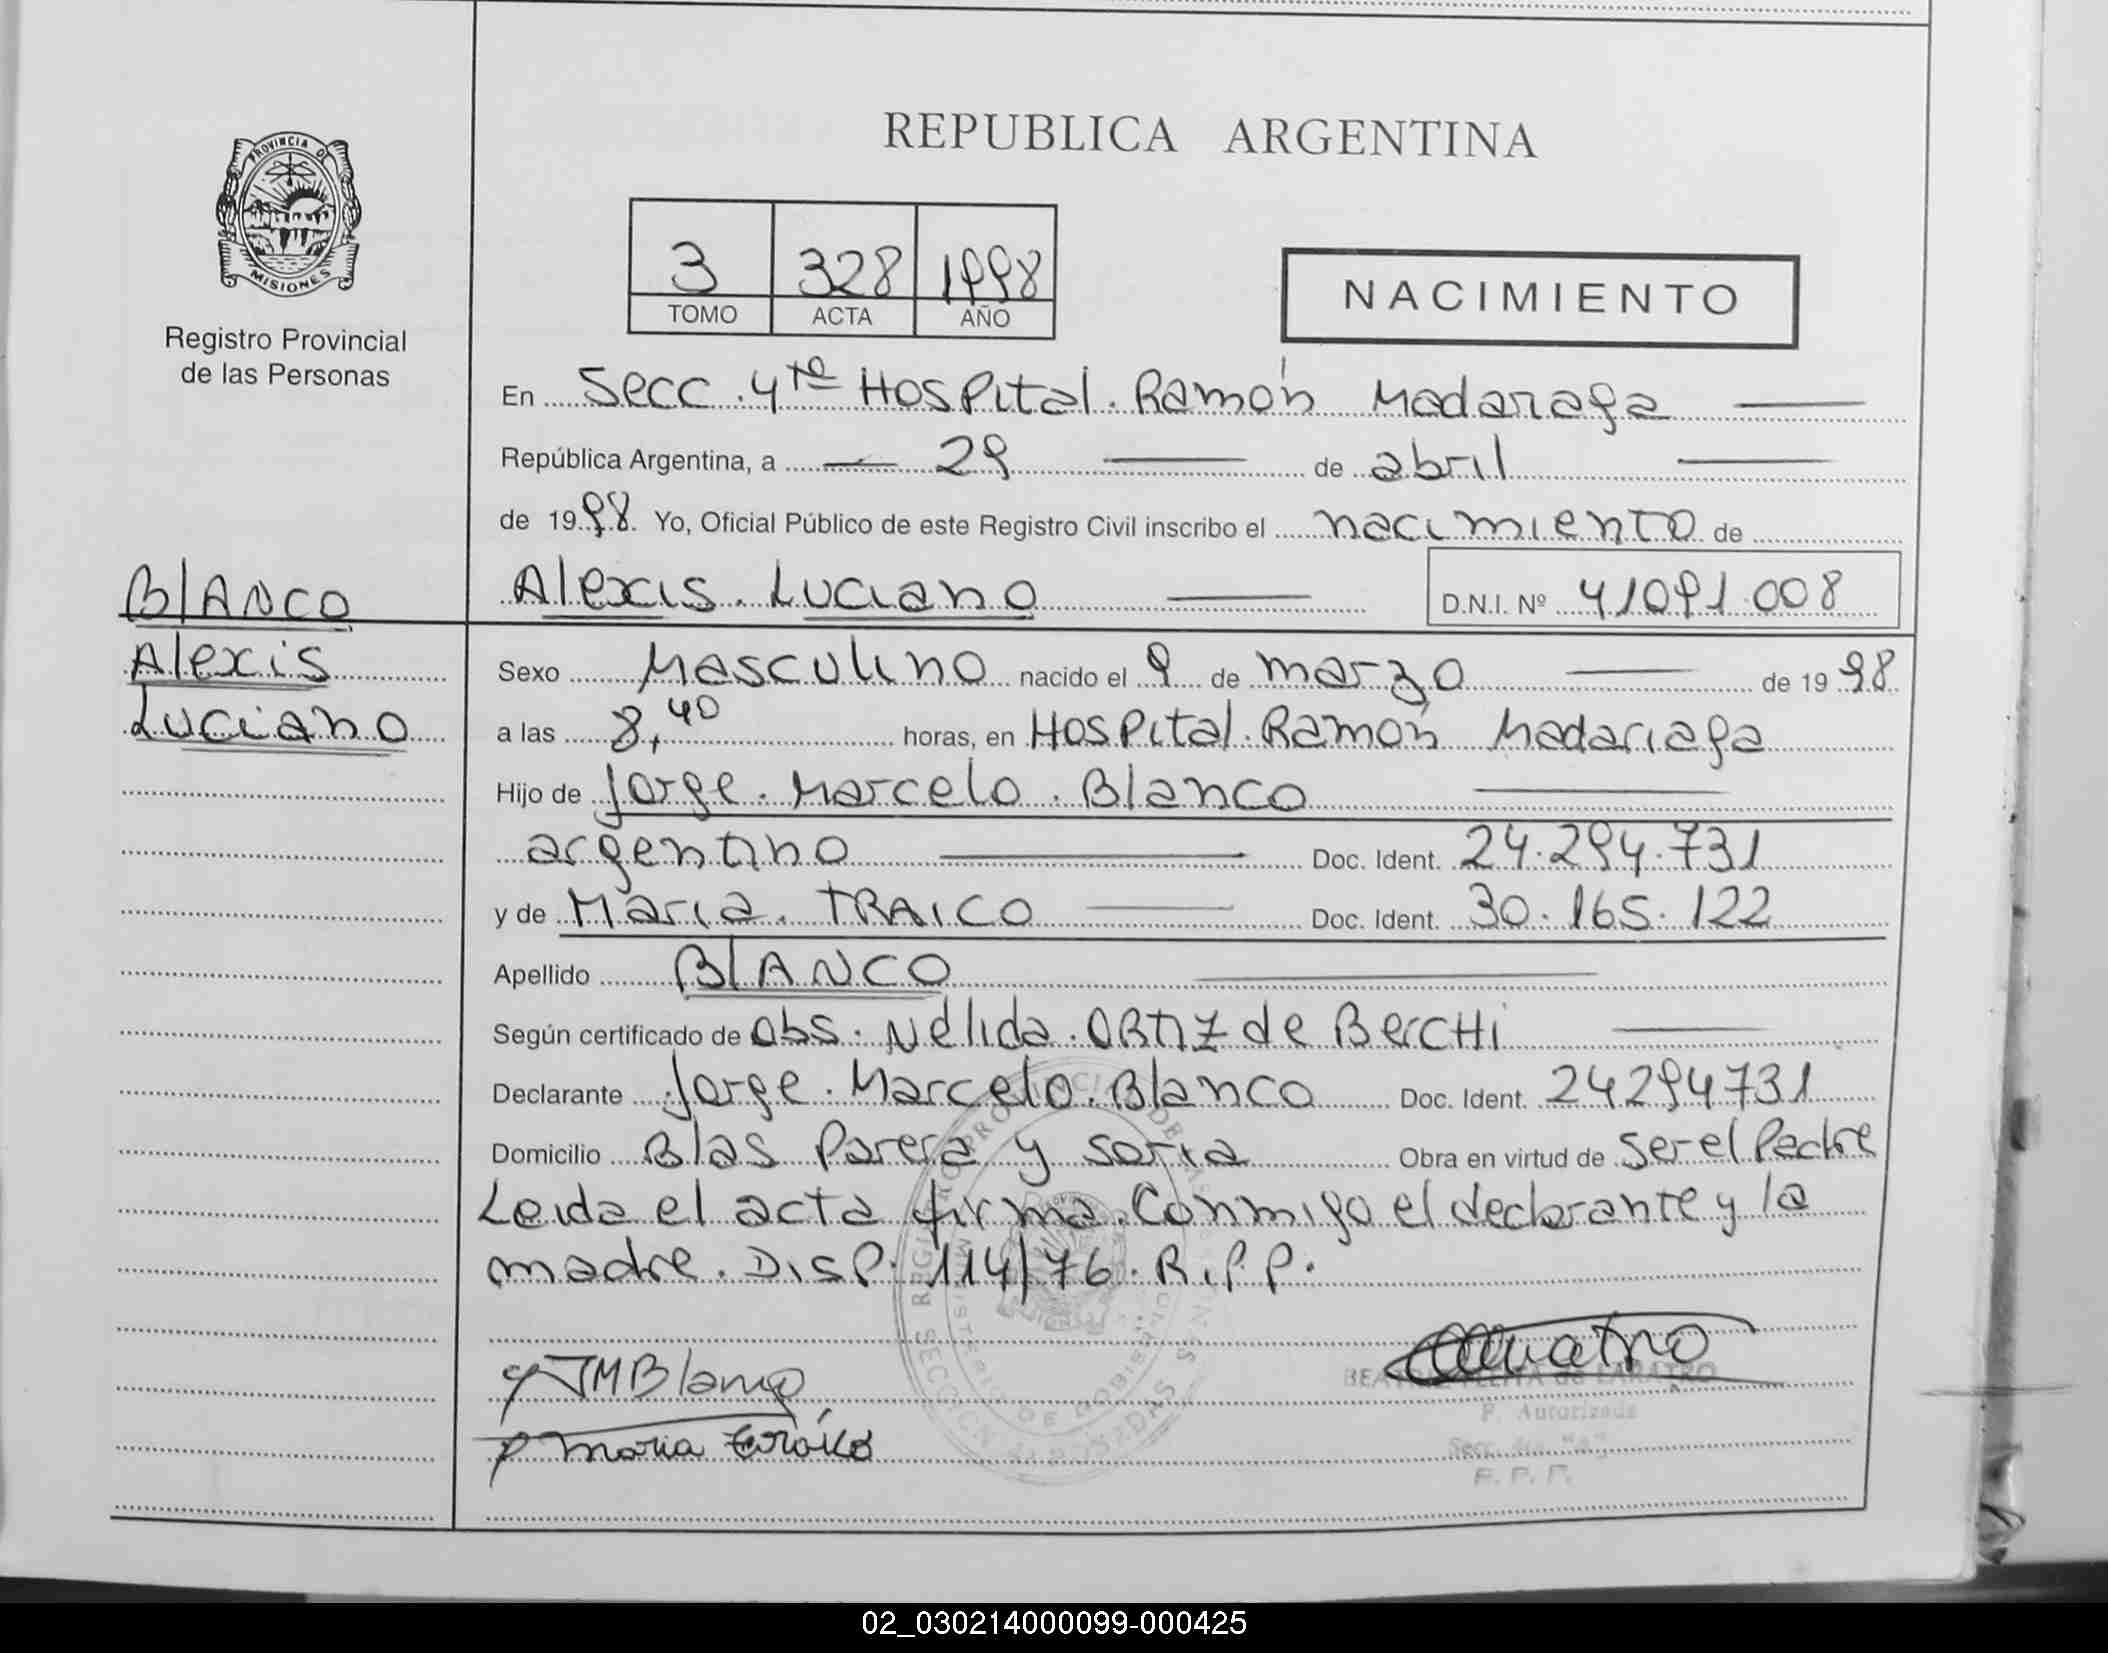 REPUBLICA ARGENTINA
PROVINCIA D
MISIONES
Registro Provincial
de las Personas
3 328 1998
TOMO ACTA AÑO
NACIMIENTO
En Secc. 4ta Hospital. Ramón Madariaga
República Argentina, a 29 de abril
de 1998. Yo, Oficial Público de este Registro Civil inscribo el nacimiento de
Alexis. Luciano D.N.I. Nº 41091008
BlANCO
Alexis
Luciano
Sexo Masculino nacido el 9 de marzo de 1998
a las 8,40 horas, en Hospital. Ramón Madariaga
Hijo de Jorge. Marcelo. Blanco
argentino Doc. Ident. 24.294.731
y de María. TRAICO Doc. Ident. 30.165.122
Apellido BlANCO
Según certificado de Obs. Nélida. ORTIZ de BercHi
Declarante Jorge. Marcelo. Blanco Doc. Ident. 24294731
Domicilio Blas Parera y Soria Obra en virtud de ser el Padre
Leida el acta firma. Conmigo el declarante y la
madre. Disp. 114/76. R.P.P.
JMBlanco
BEATRIZ de LARATRO
F. Autorizada
Secc. 4ta "A"
R. P. P.
Maria Traico
02_030214000099-000425